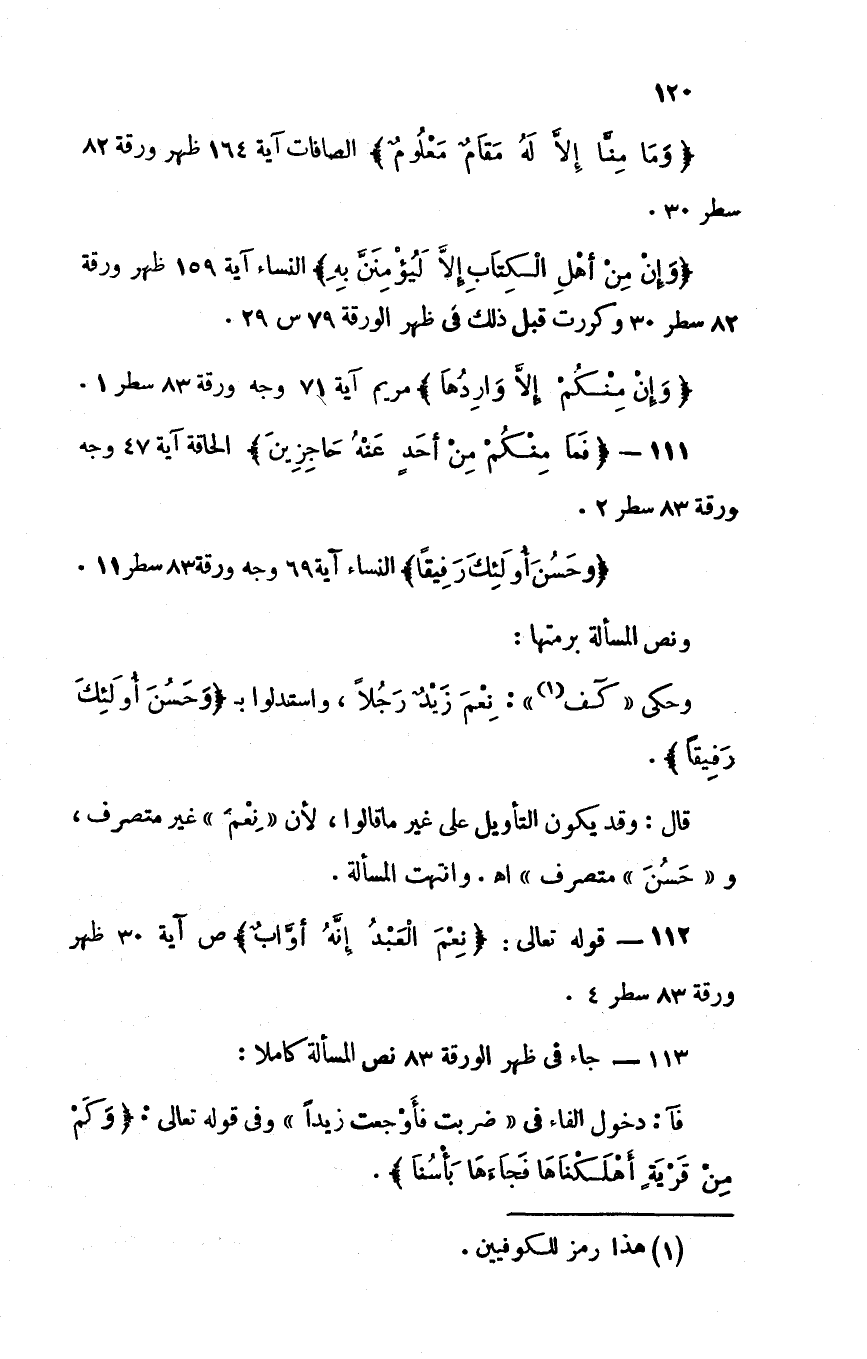 ١٢٠
﴿ وَمَا مِنَّا إِلاَّ لَهُ مَقَامٌ مَعْلُومٌ ﴾ الصافات آية ١٦٤ ظهر ورقة ٨٢
سطر ٣٠ .
﴿وَإِنْ مِنْ أهْلِ الْـكِتَابِ إِلاَّ لَيُؤْمِنَنَّ بِهِ﴾ النساء آية ١٥٩ ظهر ورقة
٨٢ سطر ٣٠ وكررت قبل ذلك فى ظهر الورقة ٧٩ س ٢٩ .
﴿ وَإِنْ مِنْـكُمْ إِلاَّ وَارِدُهاَ ﴾ مريم آية ٧١ وجه ورقة ٨٣ سطر ١ .
١١١ – ﴿ فَمَا مِنْـكُمْ مِنْ أحَدٍ عَنْهُ حَاجِزِينَ ﴾ الحاقة آية ٤٧ وجه
ورقة ٨٣ سطر ٢ .
﴿وحَسُنَ أُولَئِكَ رَفِيقاً﴾ النساء آية ٦٩ وجه ورقة ٨٣ سطر ١١ .
ونص المسألة برمتها :
وحكى « كَـف(١) » : نِعْمَ زَيْدٌ رَجُلاً ، واستدلوا بـ ﴿وَحَسُنَ أُولَئِكَ
رَفِيقاً ﴾ .
قال : وقد يكون التأويل على غير ماقالوا ، لأن « نِعْمَ » غير متصرف ،
و « حَسُنَ » متصرف » اه . وانتهت المسألة .
١١٢ – قوله تعالى : ﴿ نِعْمَ الْعَبْدُ إِنَّهُ أوَّابٌ ﴾ ص آية ٣٠ ظهر
ورقة ٨٣ سطر ٤ .
١١٣ – جاء فى ظهر الورقة ٨٣ نص المسألة كاملا :
فَآ : دخول الفاء فى « ضربت فأَوْجعت زيداً » وفى قوله تعالى : ﴿ وَكَمْ
مِنْ قَرْيَةٍ أَهْلَـكْنَاهَا فَجَاءَهَا بَأْسُنَا ﴾ .
(١) هذا رمز للكوفيين .